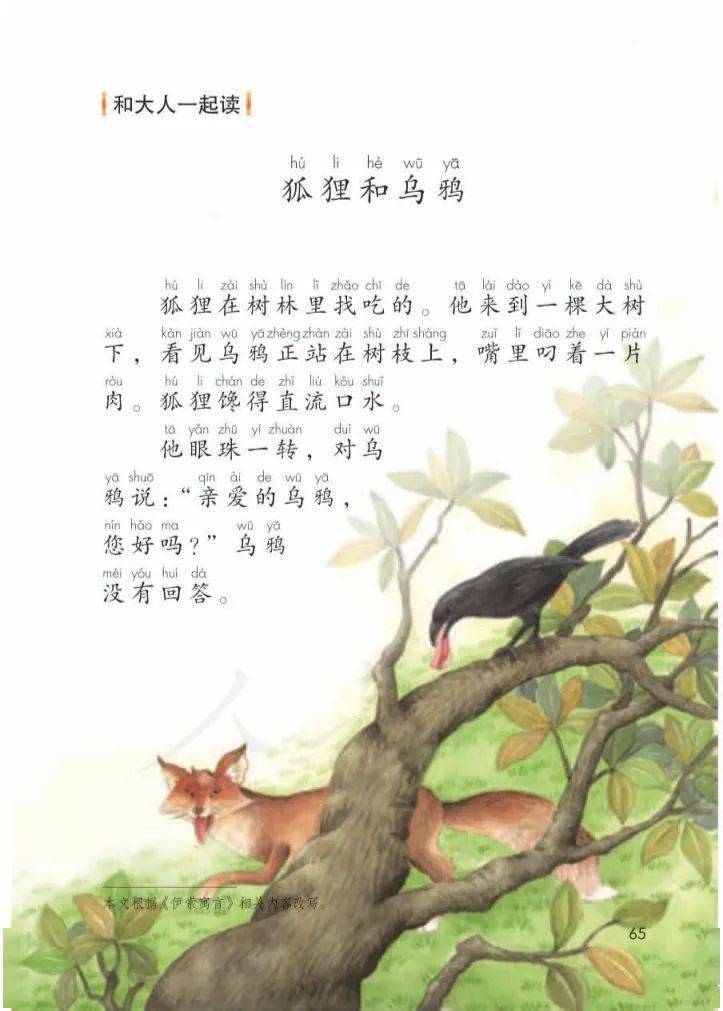 和大人一起读
hú li hé wū yā
狐狸和乌鸦
hú li zài shù lín lǐ zhǎo chī de tā lái dào yì kē dà shù
狐狸在树林里找吃的。他来到一棵大树
xià kàn jiàn wū yā zhèng zhàn zài shù zhī shàng zuǐ lǐ diāo zhe yí piàn
下，看见乌鸦正站在树枝上，嘴里叼着一片
ròu hú li chán de zhí liú kǒu shuǐ
肉。狐狸馋得直流口水。
tā yǎn zhū yí zhuàn duì wū
他眼珠一转，对乌
yā shuō qīn ài de wū yā
鸦说：“亲爱的乌鸦，
nín hǎo ma wū yā
您好吗？”乌鸦
méi yǒu huí dá
没有回答。
本文根据《伊索寓言》相关内容改写。
65